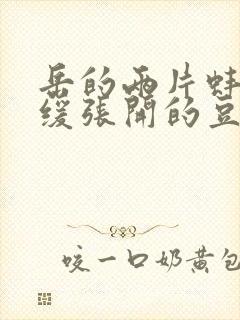 岳的兩片蚌
缓張開的豆
咬一口奶黄包